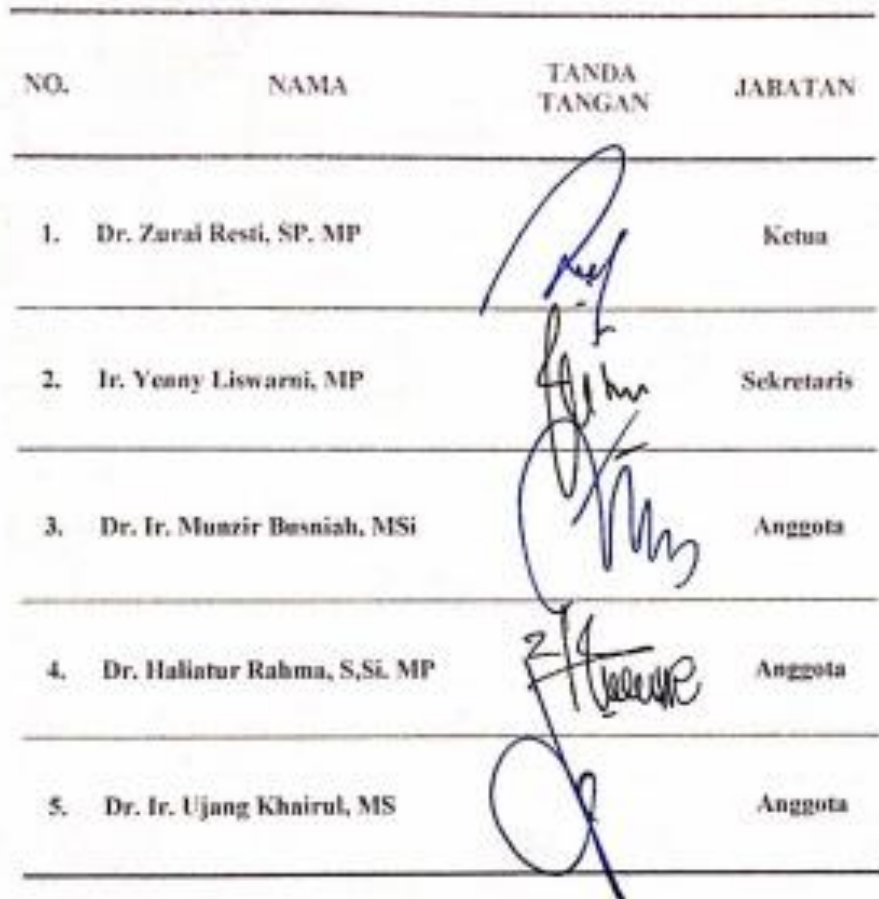 NO. NAMA TANDA TANGAN JABATAN
1. Dr. Zurai Resti, SP. MP Ketua
2. Ir. Yenny Liswarni, MP Sekretaris
3. Dr. Ir. Munzir Busniah, MSi Anggota
4. Dr. Haliatur Rahma, S,Si. MP Anggota
5. Dr. Ir. Ujang Khairul, MS Anggota